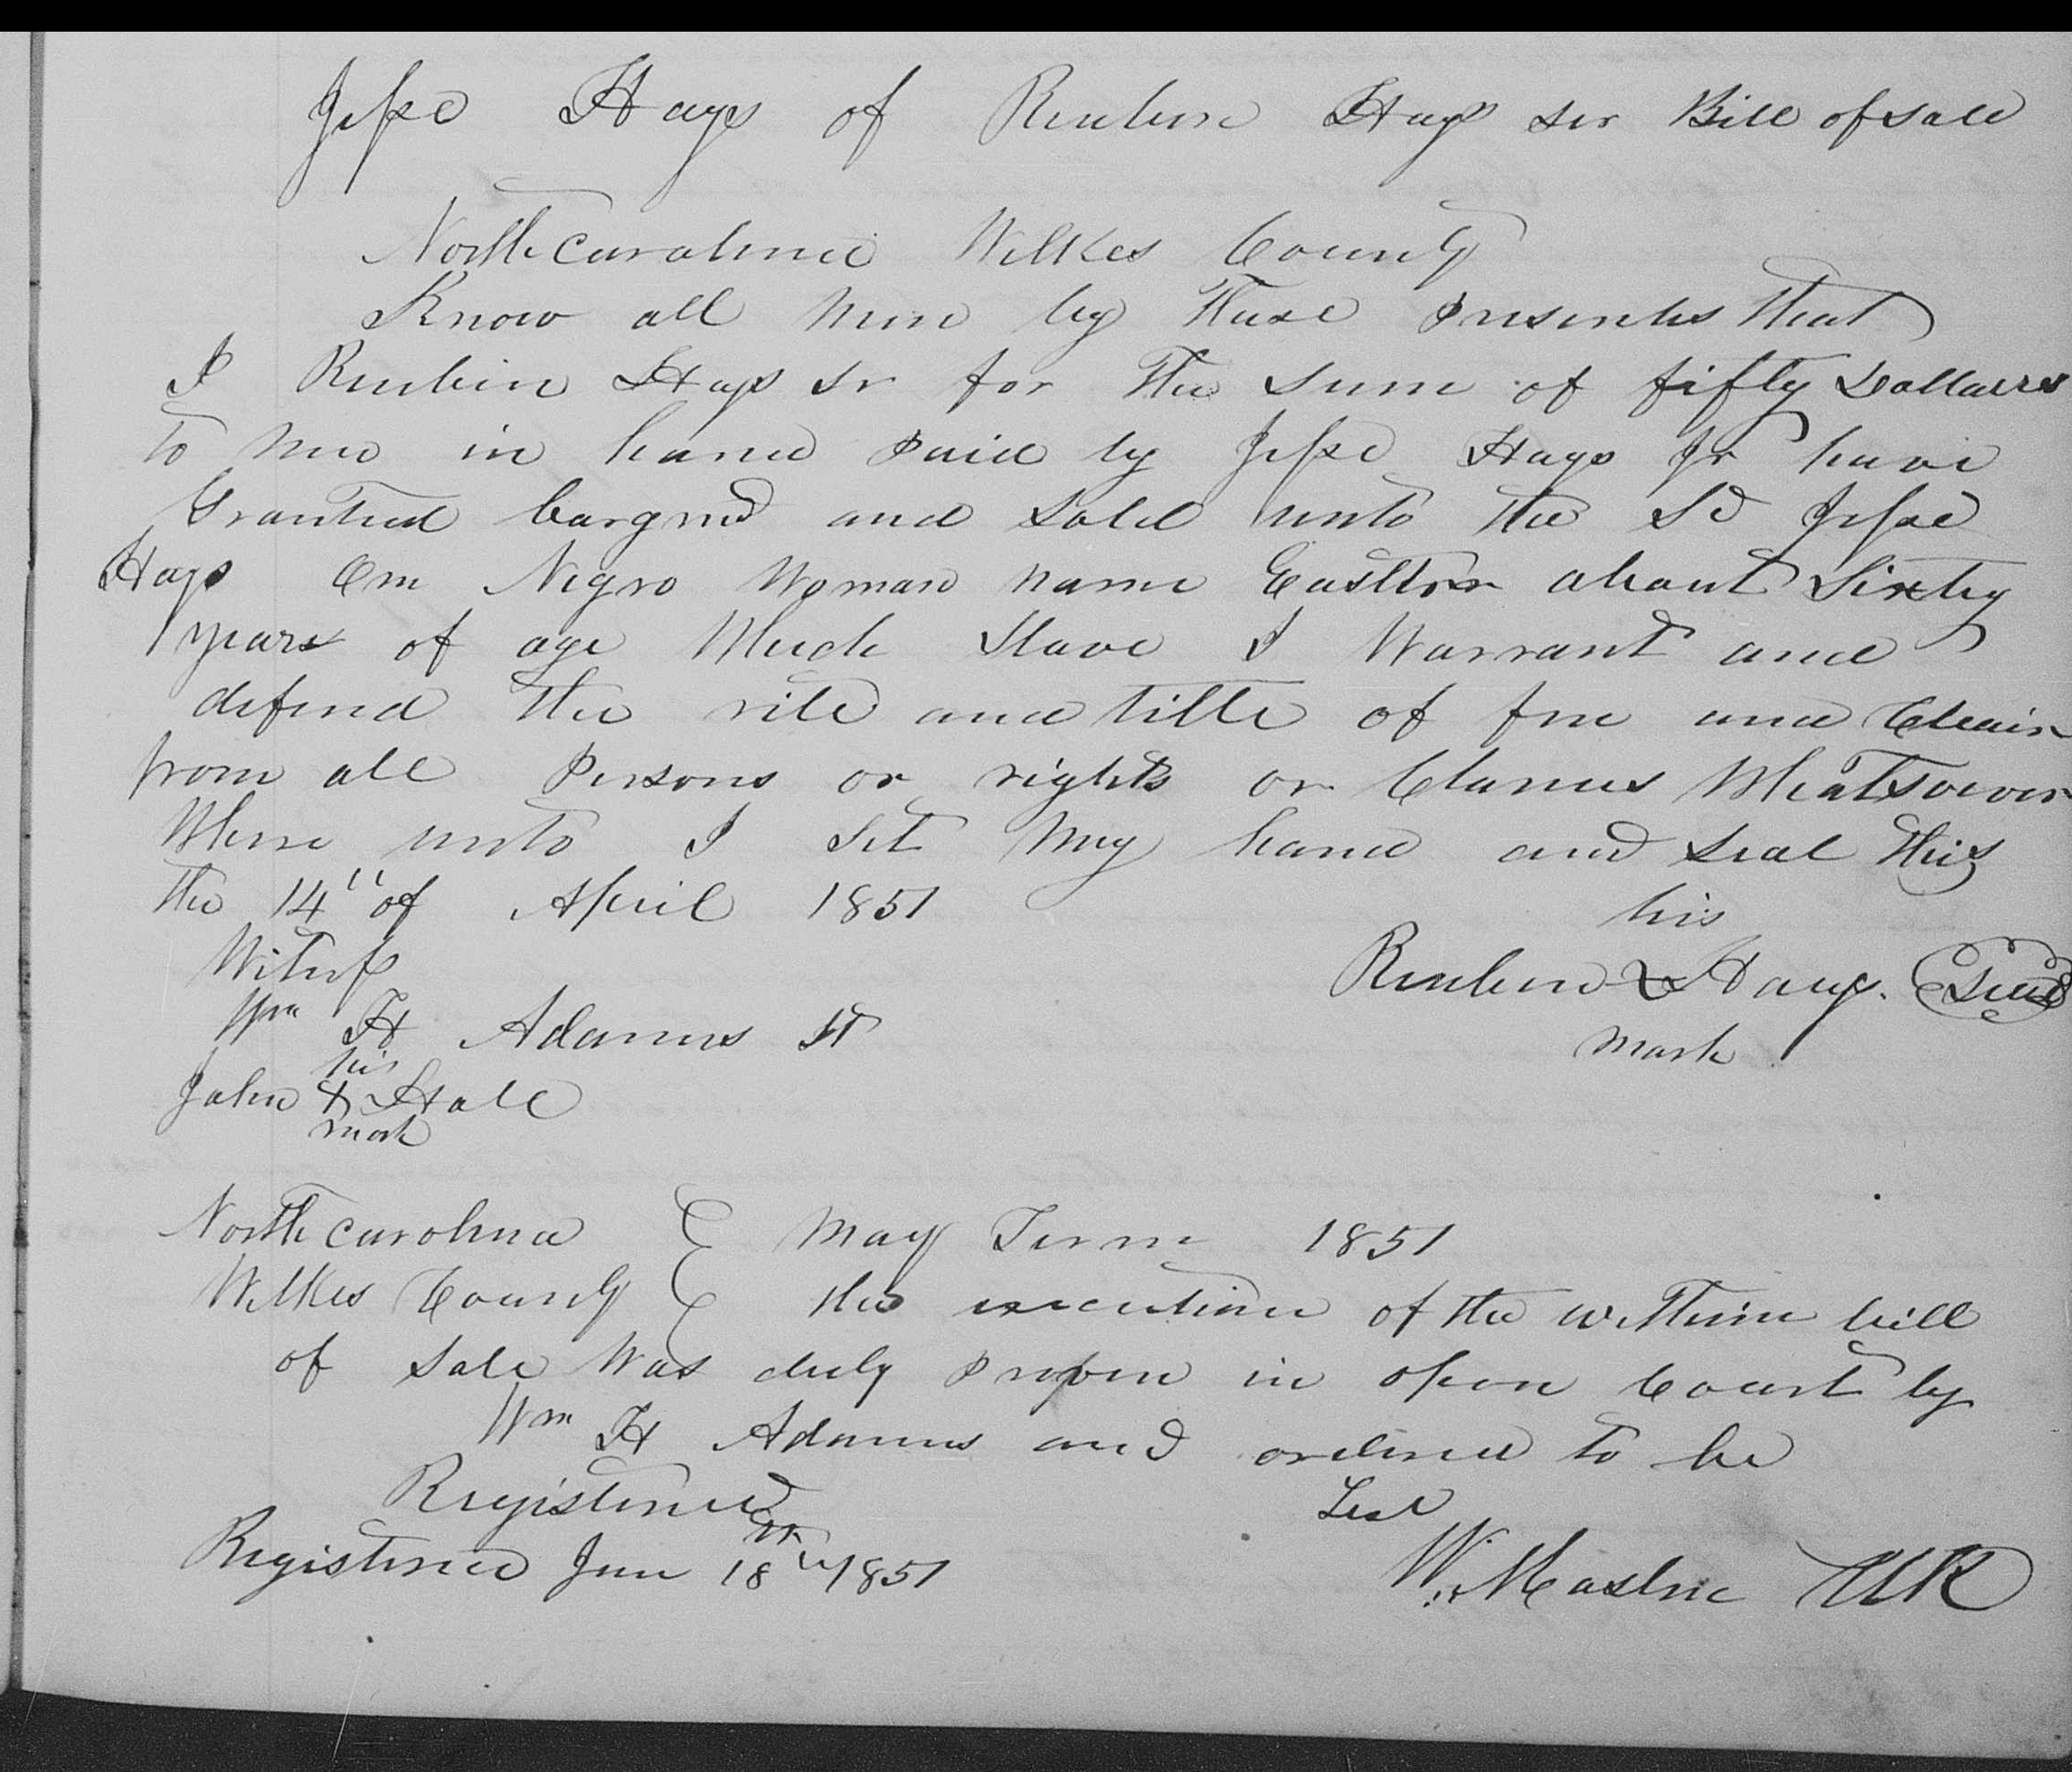 Jesse Hays of Reuben Hays ser Bill of sale
North carolina Wilkes County
Know all men by these presentes that
I Reubin Hays sr for the sum of fifty Dollares
to me in hand paid by Jesse Hays Jr have
Granted bargnd and sold unto the Sd Jesse
Hays One Negro Woman name about Sixty
years of age Which Slave I Warrant and
defend the rite and title of free and Clear
from all Persons or rights or Clames Whatsoever
Where unto I Set my hand and seal this
the 14" of April 1851
his
Witness
Reuben Hays. Seal
Wm H Adams
mark
his
John X Hall
mark
North carolina May Term 1851
Wilkes County the execution of the within bill
of sale Was duly proven in open Court by
Wm H Adams and ordered to be
Registered
Test
Registered June 18 1851
W. Mastin Clk